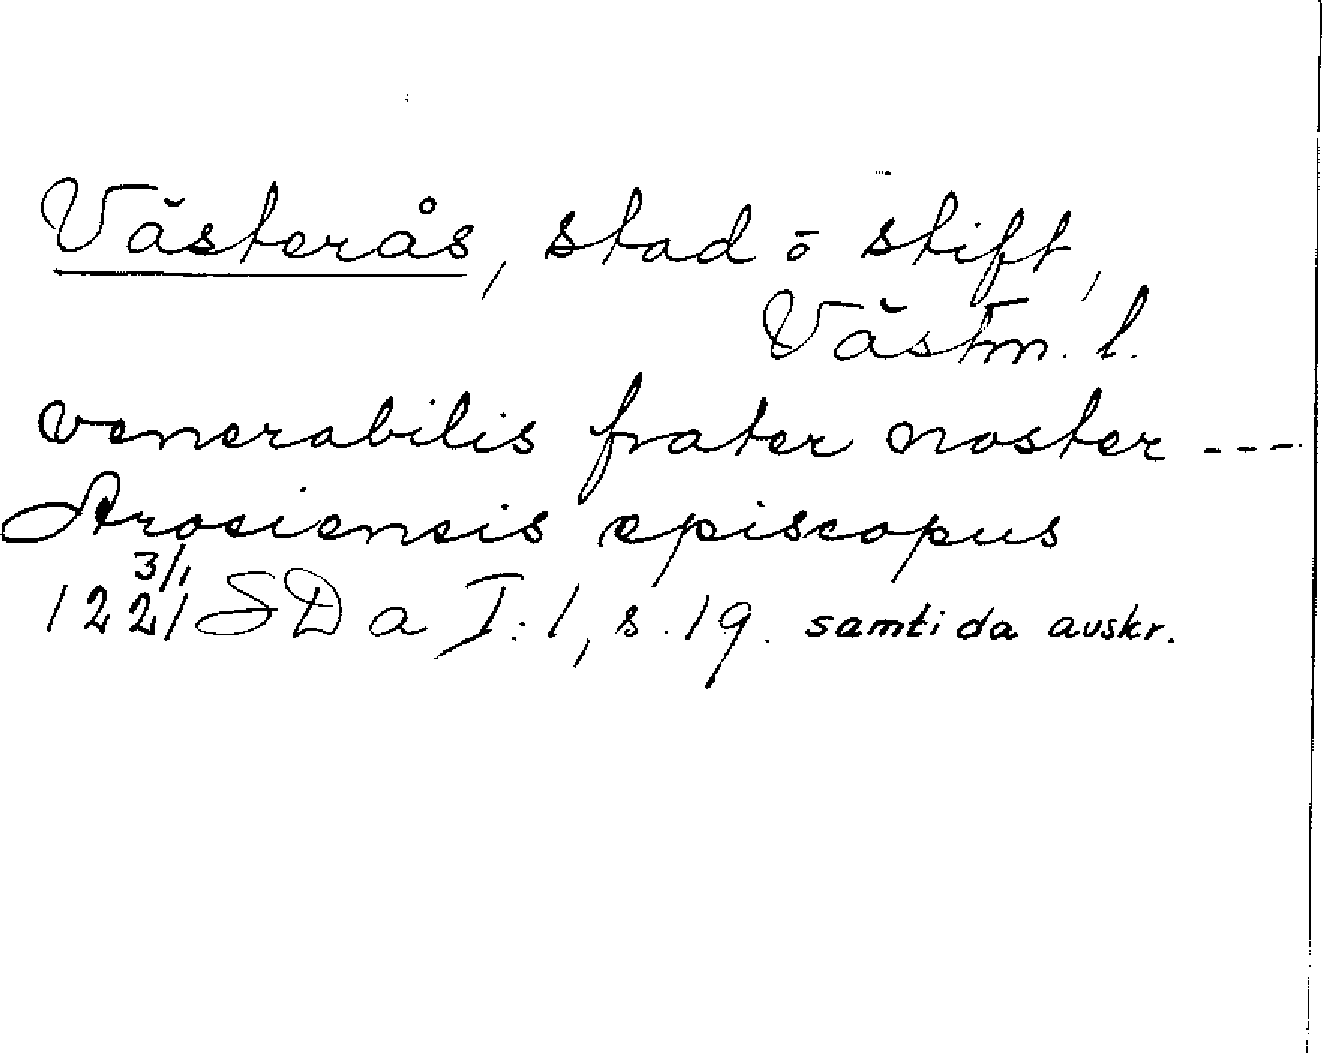 Västerås, stad ō stift,
Västm. l.
venerabilis frater noster ---
Arosiensis episcopus
3/1
1221 SD a I:1, s. 19. samtida avskr.